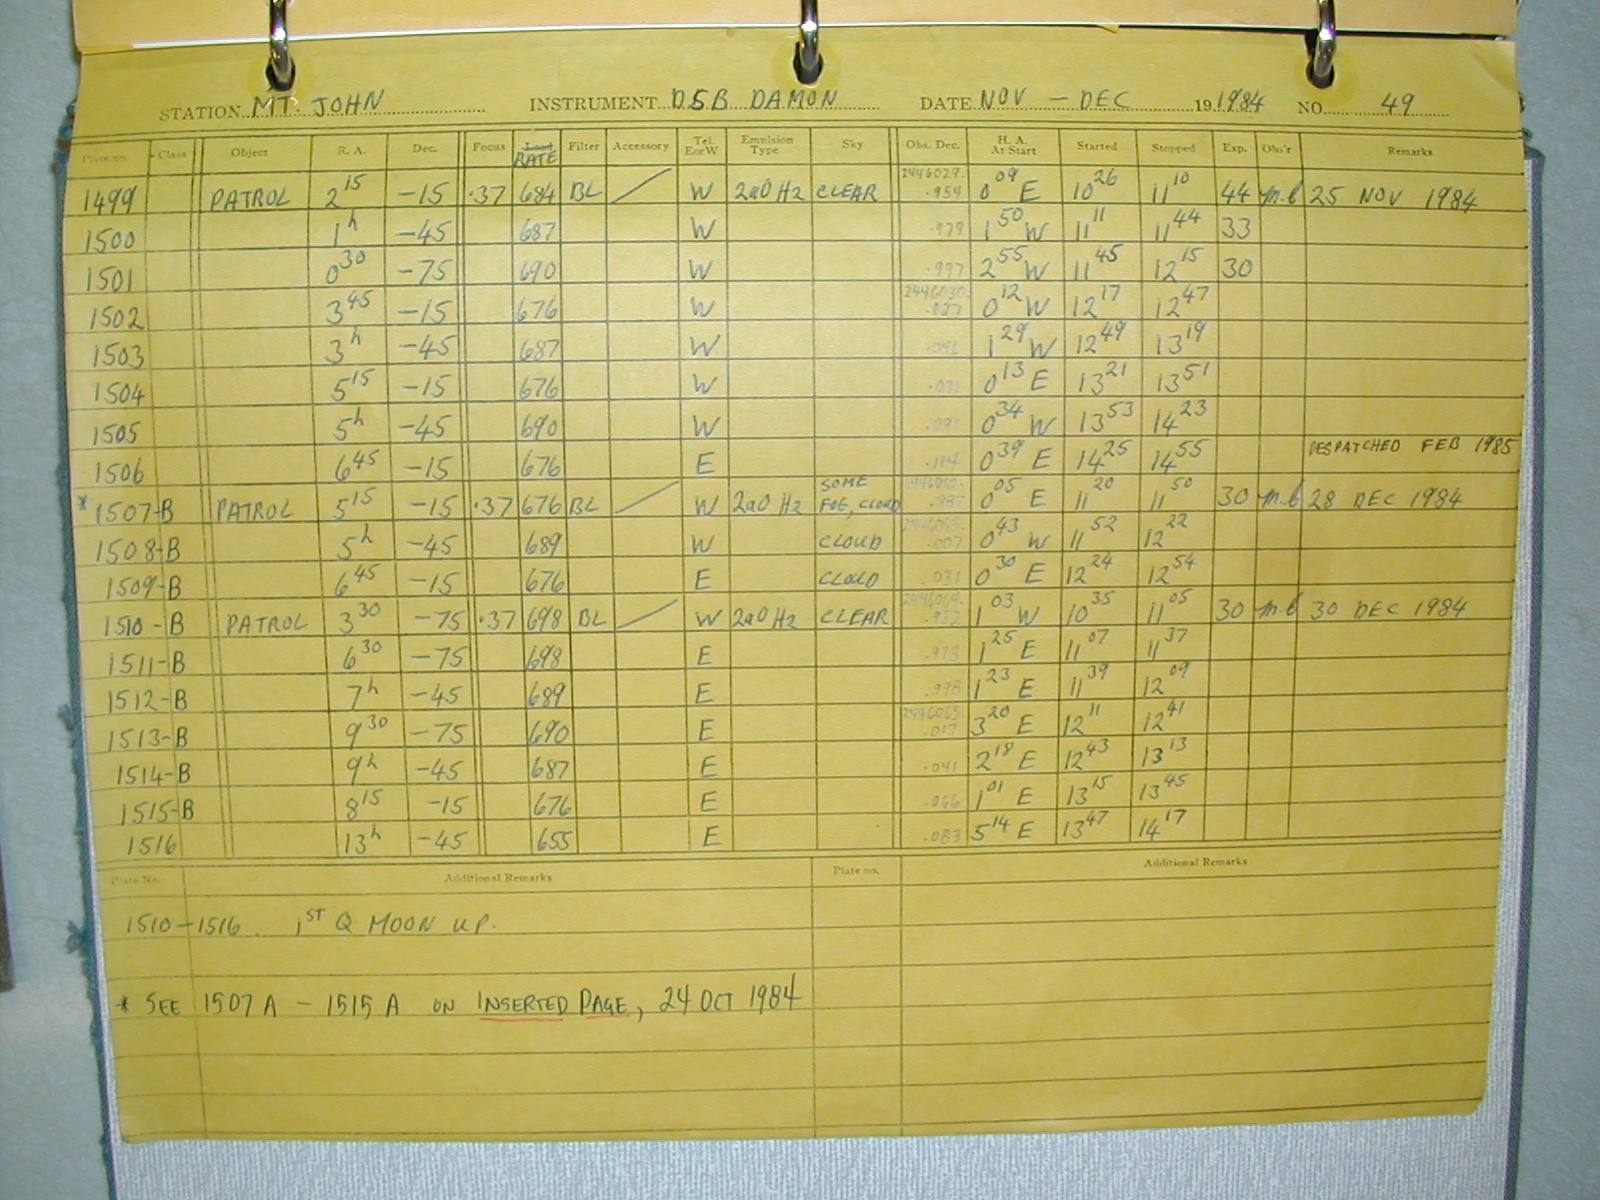 STATION MT. JOHN INSTRUMENT DSB DAMON DATE NOV - DEC 19 1984 NO. 49
Plate no. Class Object R. A. Dec. Focus RATE Filter Accessory Tel. E or W Emulsion Type Sky Obs. Dec. H. A. At Start Started Stopped Exp. Obs'r Remarks
1499 PATROL 2 15 -15 .37 684 BL / W 2a0 H2 CLEAR 2446029. .954 0 09 E 10 26 11 10 44 m.b 25 NOV 1984
1500 1 h -45 687 W .979 1 50 W 11 11 11 44 33
1501 0 30 -75 690 W .997 2 55 W 11 45 12 15 30
1502 3 45 -15 676 W 2446030. 0 12 W 12 17 12 47
1503 3 h -45 687 W 1 29 W 12 49 13 19
1504 5 15 -15 676 W 0 13 E 13 21 13 51
1505 5 h -45 690 W 0 34 W 13 53 14 23
1506 6 45 -15 676 E 0 39 E 14 25 14 55 DESPATCHED FEB 1985
* 1507-B PATROL 5 15 -15 .37 676 BL / W 2a0 H2 SOME FOG, CLOUD .987 0 05 E 11 20 11 50 30 m.b 28 DEC 1984
1508-B 5 h -45 689 W CLOUD .007 0 43 W 11 52 12 22
1509-B 6 45 -15 676 E CLOUD .031 0 30 E 12 24 12 54
1510-B PATROL 3 30 -75 .37 698 BL / W 2a0 H2 CLEAR 2446064. 1 03 W 10 35 11 05 30 m.b 30 DEC 1984
1511-B 6 30 -75 698 E .973 1 25 E 11 07 11 37
1512-B 7 h -45 689 E .998 1 23 E 11 39 12 09
1513-B 9 30 -75 690 E 2446065. .017 3 20 E 12 11 12 41
1514-B 9 h -45 687 E .041 2 18 E 12 43 13 13
1515-B 8 15 -15 676 E .066 1 01 E 13 15 13 45
1516 13 h -45 655 E .083 5 14 E 13 47 14 17
Plate No. Additional Remarks Plate no. Additional Remarks
1510-1516. 1ST Q MOON UP.
* SEE 1507A - 1515A ON INSERTED PAGE, 24 OCT 1984